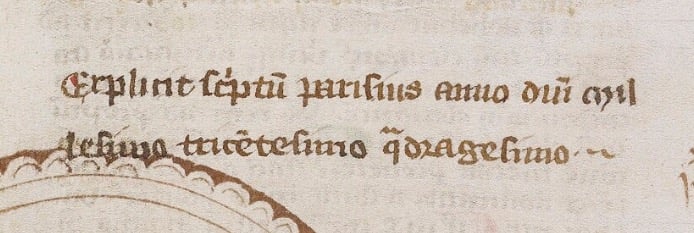 Explicit sc̕ptū parisius anno dn̄i Mil
lesimo tricētesimo qᷓdragesimo